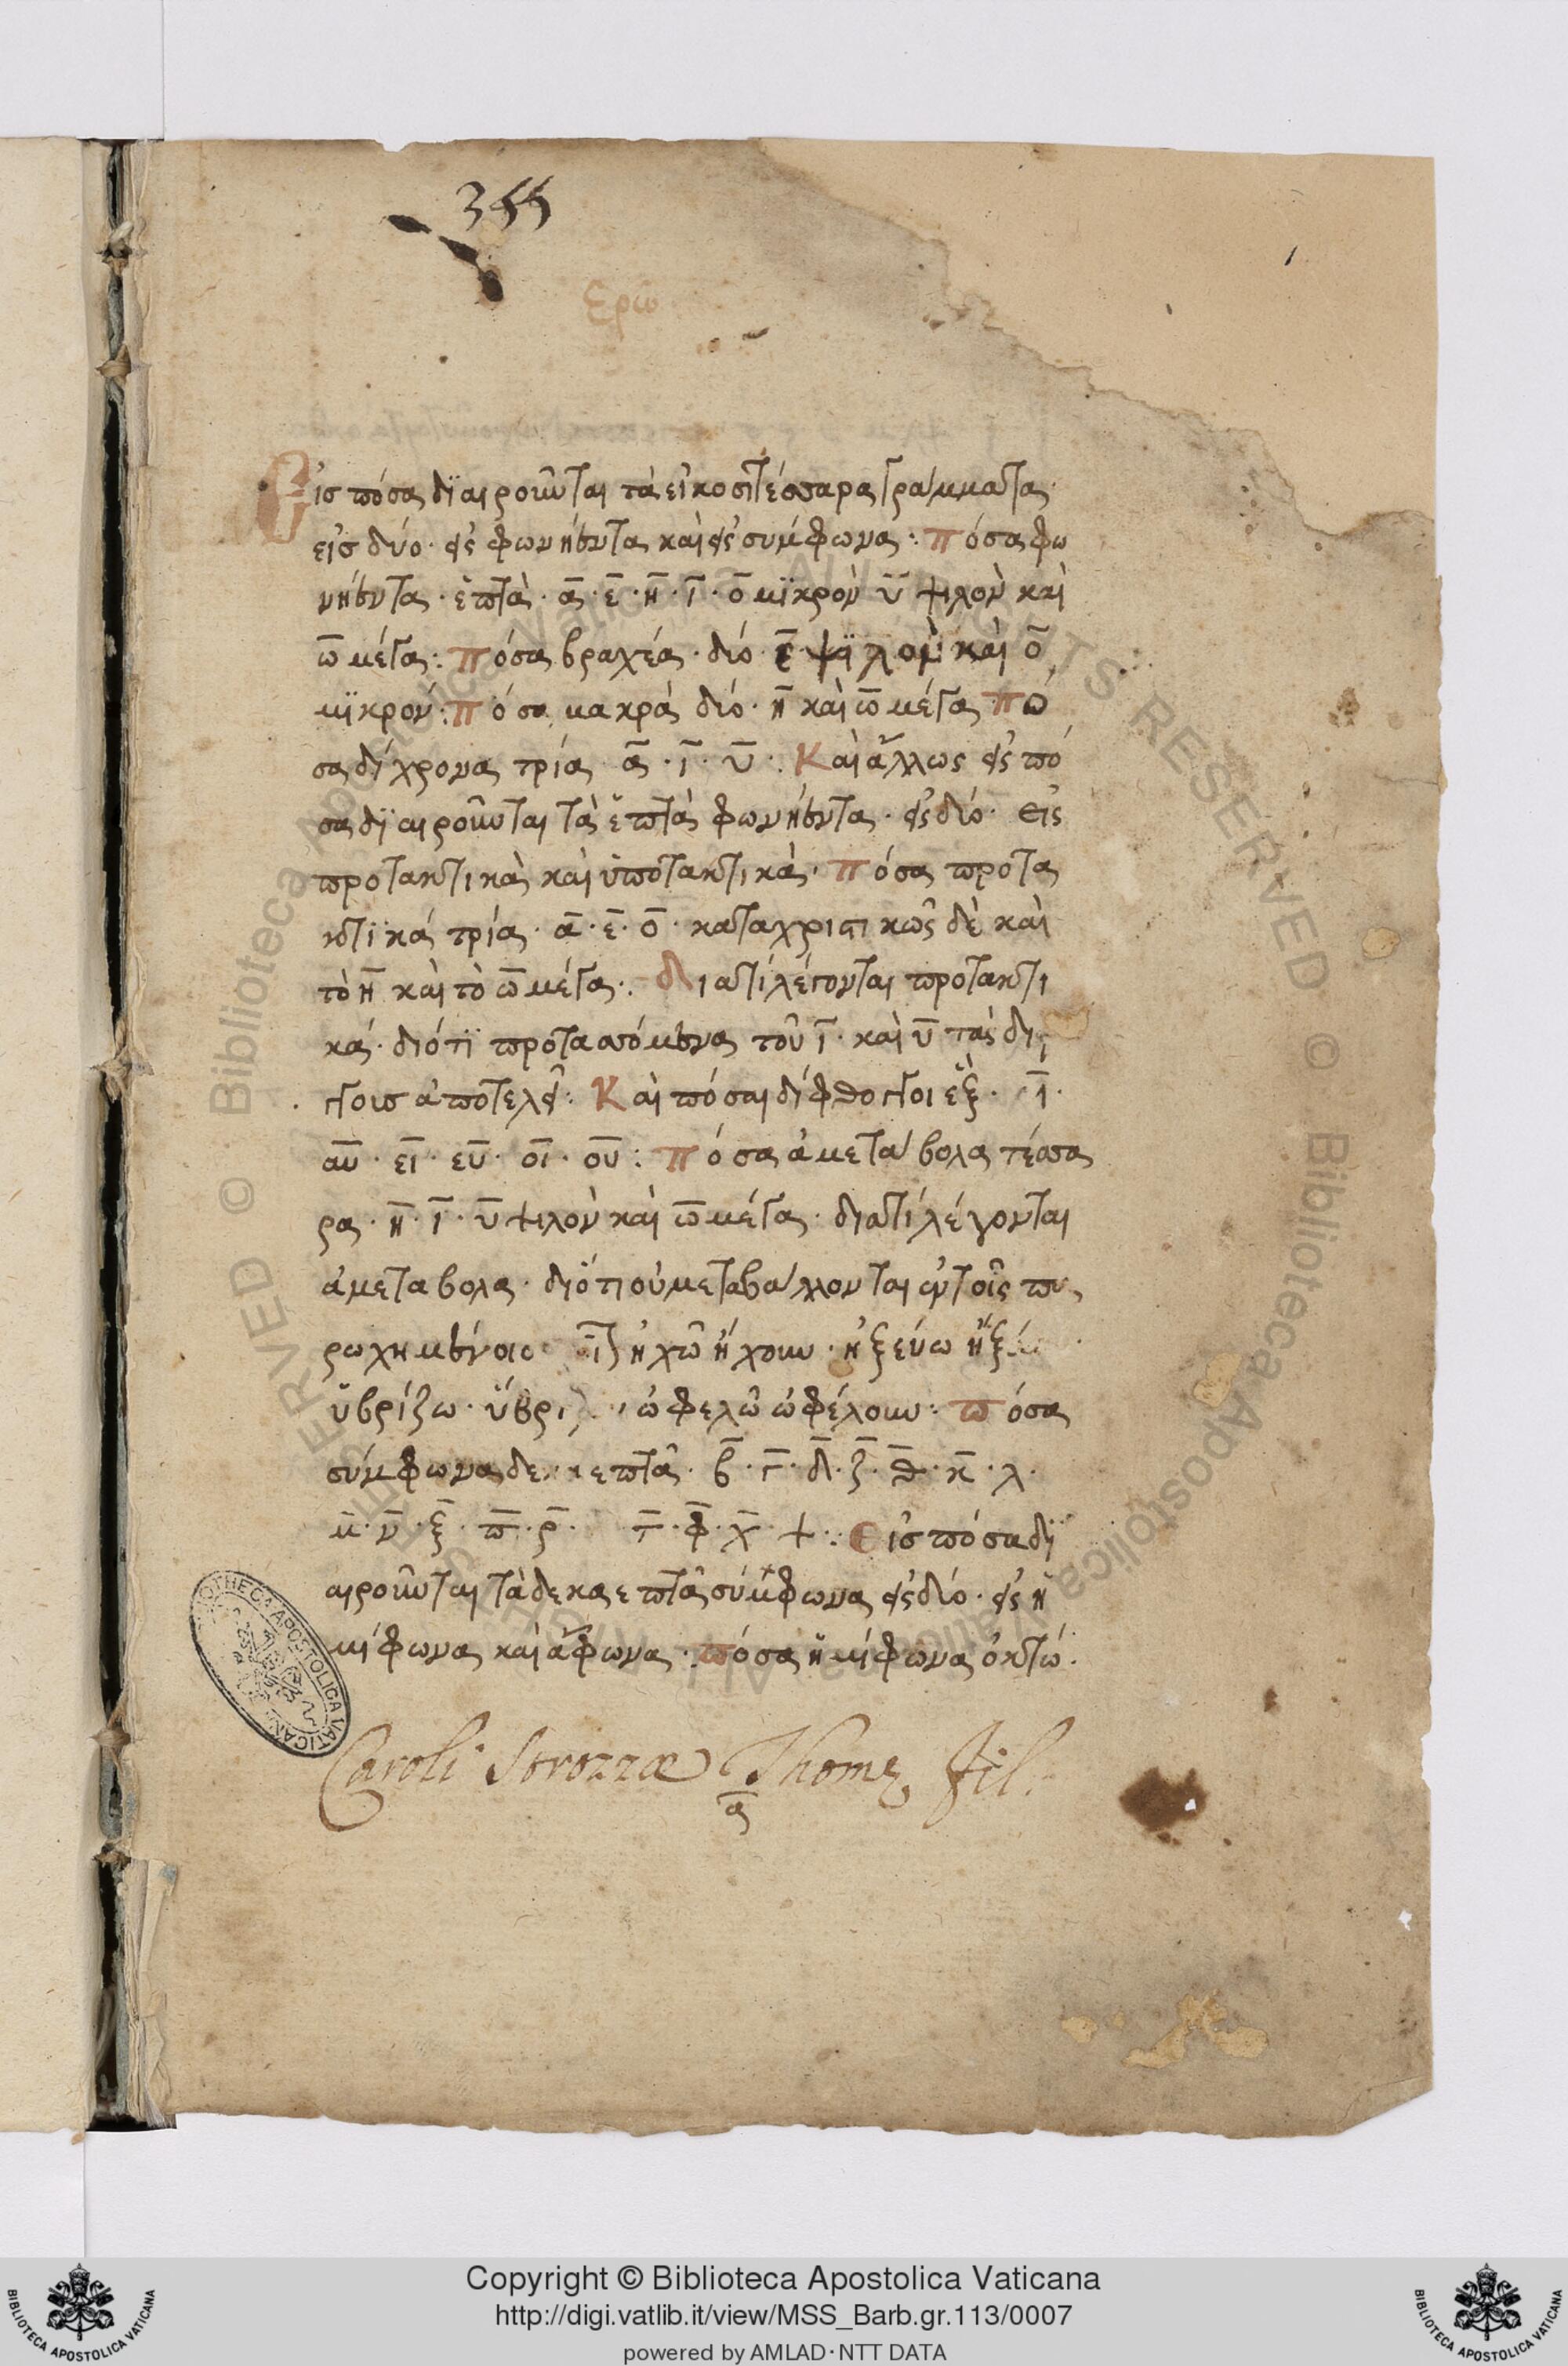 355
Ερω
Εἰσ πόσα δϊαιροῦνται τὰ εἰκοσιτέσσαρα γράμματα·
εἰσ δύο· εἰς φωνήεντα καὶ εἰς σύμφωνα: πόσα φω
νήεντα· ἑπτὰ· α̅· ε̅· η̅· ι̅· ο̅ μϊκρὸν υ̅ ψιλὸν καὶ
ω̅ μέγα: πόσα βραχέα· διό· ε̅ ψϊλὸν καὶ ο̅
μϊκρόν: πόσα μακρὰ διό· η̅ καὶ ω̅ μέγα πό
σα δίχρονα τρία· α̅· ι̅· υ̅: Καὶ ἄλλως εἰς πό
σα δϊαιροῦνται τὰ ἑπτὰ φωνήεντα· εἰς διό· Εἰς
προτακτικὰ καὶ ὑποτακτικὰ· πόσα προτα
κτϊκά τρία· α̅· ε̅· ο̅· καταχριστικῶς δὲ καὶ
τὸ η̅ καὶ τὸ ω̅ μέγα: διατί λέγονται προτακτι
κά· διότϊ προτασσόμενα τοῦ ι̅· καὶ υ̅ τὰς δι
γγοισ ἀποτελεῖ: Καὶ πόσαι δίφθογγοι ἕξ· ι̅·
αυ̅· ει̅· ευ̅· οι̅· ου̅: πόσα ἀμετάβολα τέσσα
ρα· η̅· ι̅· υ̅ ψιλὸν καὶ ω̅ μέγα· διατί λέγονται
ἀμετάβολα· διότι οὐ μεταβάλλονται ἐν τοῖς πα
ρωχημένοις ἠχῶ ἤχουν· ἠξεύω
ὑβρίζω· ὠφελῶ ὠφέλουν: πόσα
σύμφωνα επτὰ· β̅· γ̅· δ̅· ζ̅· θ̅· κ̅· λ·
μ̅· ν̅· ξ̅· π̅· ρ̅· τ̅· φ̅· χ̅· ψ: Εἰσ πόσα δϊ
αιροῦνται τὰ δεκαεπτὰ σύμφωνα εἰς διό· εἰς ἡ
μίφωνα καὶ ἄφωνα: πόσα ἡμίφωνα ὀκτώ:
Caroli Strozzæ Thomę fil.
α̅
BIBLIOTHECA APOSTOLICA VATICANA
© Biblioteca Apostolica Vaticana ALL RIGHTS RESERVED © Biblioteca Apostolica Vaticana ALL RIGHTS RESERVED
Copyright © Biblioteca Apostolica Vaticana
http://digi.vatlib.it/view/MSS_Barb.gr.113/0007
powered by AMLAD·NTT DATA
BIBLIOTECA APOSTOLICA VATICANA
BIBLIOTECA APOSTOLICA VATICANA